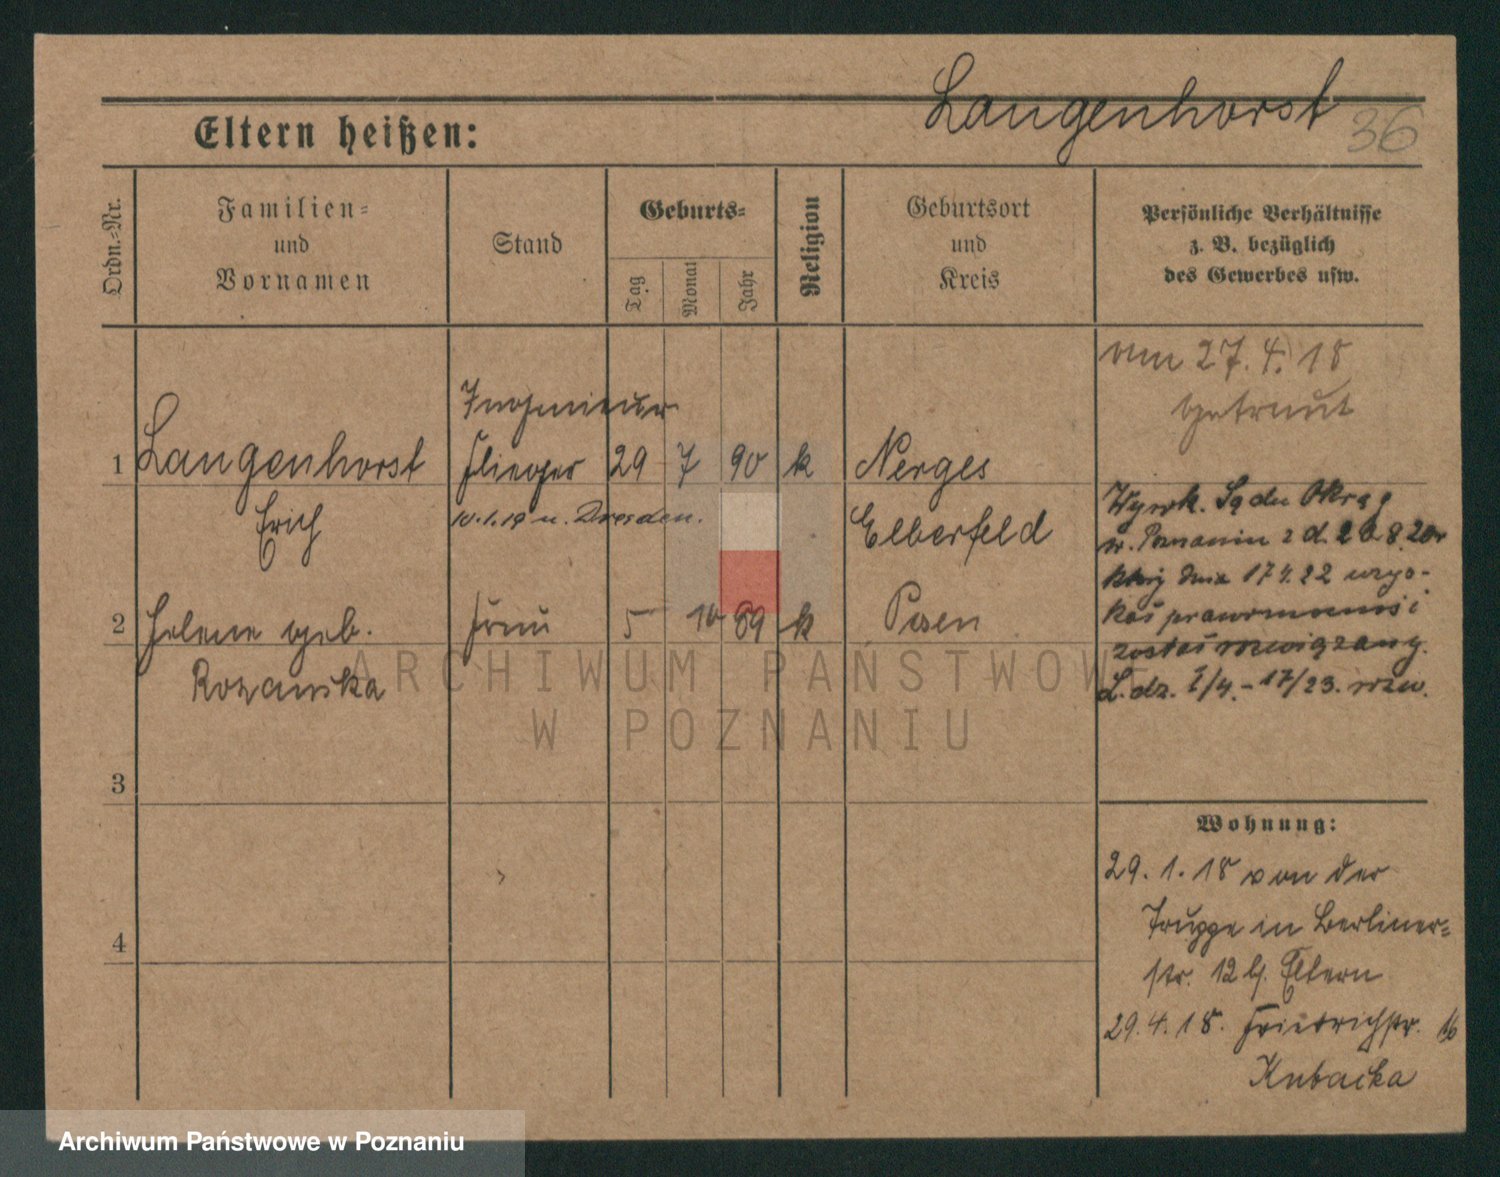 Langenhorst
36
Eltern heißen:
Ordn.-Nr.
Familien-
und
Vornamen
Stand
Geburts-
Tag
Monat
Jahr
Religion
Geburtsort
und
Kreis
Persönliche Verhältnisse
z. B. bezüglich
des Gewerbes usw.
am 27. 4. 18
getraut
Ingenieur
1 Langenhorst Flieger 29 7 90 k Nerges
Erich 10.1.19 n. Dresden. Elberfeld
Wyrok. Sądu Okręg
w. Poznaniu z d. 8.20
dnia 17 4. 22 uzys-
kał prawomocność i
został rozwiązany.
L. dz. 1/4. - 17/23. rozw.
2 Helene geb. Frau 5 10 89 k Posen
Rozanska
3
4
Wohnung:
29. 1. 18 von der
Truppe in Berliner-
str. 12 b. Eltern
29. 4. 18. Friedrichstr. 16
Kubacka
ARCHIWUM PAŃSTWOWE
W POZNANIU
Archiwum Państwowe w Poznaniu